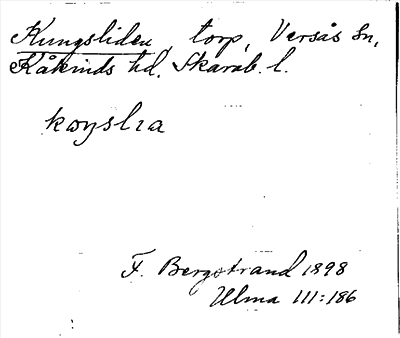 Kungsliden, torp, Versås Sn,
Kåkinds hd. Skarab. l.
F. Bergstrand 1898
Ulma 111:186